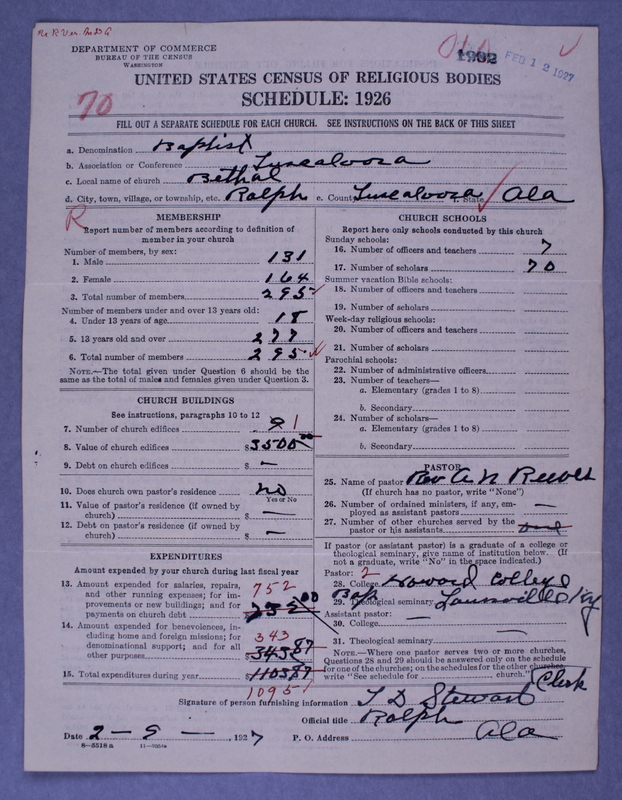 DEPARTMENT OF COMMERCE
BUREAU OF THE CENSUS
WASHINGTON
Ala
1902
FEB 12 1927
UNITED STATES CENSUS OF RELIGIOUS BODIES
SCHEDULE: 1926
70
FILL OUT A SEPARATE SCHEDULE FOR EACH CHURCH. SEE INSTRUCTIONS ON THE BACK OF THIS SHEET
a. Denomination Baptist
b. Association or Conference Tuscaloosa
c. Local name of church Bethal
d. City, town, village, or township, etc. Ralph e. County Tuscaloosa f. State Ala
R
MEMBERSHIP
Report number of members according to definition of member in your church
Number of members, by sex:
1. Male 131
2. Female 164
3. Total number of members 295
Number of members under and over 13 years old:
4. Under 13 years of age 18
5. 13 years old and over 277
6. Total number of members 295
NOTE.—The total given under Question 6 should be the same as the total of males and females given under Question 3.
CHURCH BUILDINGS
See instructions, paragraphs 10 to 12
7. Number of church edifices 1
8. Value of church edifices $3500 00
9. Debt on church edifices $ —
10. Does church own pastor's residence no
Yes or No
11. Value of pastor's residence (if owned by church) $ —
12. Debt on pastor's residence (if owned by church) $ —
EXPENDITURES
Amount expended by your church during last fiscal year
13. Amount expended for salaries, repairs, and other running expenses; for improvements or new buildings; and for payments on church debt 752
14. Amount expended for benevolences, including home and foreign missions; for denominational support; and for all other purposes 343
$343 87
15. Total expenditures during year $1103 87
1095
CHURCH SCHOOLS
Report here only schools conducted by this church
Sunday schools:
16. Number of officers and teachers 7
17. Number of scholars 70
Summer vacation Bible schools:
18. Number of officers and teachers
19. Number of scholars
Week-day religious schools:
20. Number of officers and teachers
21. Number of scholars
Parochial schools:
22. Number of administrative officers
23. Number of teachers—
a. Elementary (grades 1 to 8)
b. Secondary
24. Number of scholars—
a. Elementary (grades 1 to 8)
b. Secondary
PASTOR
25. Name of pastor Rev A. N. Reeves
(If church has no pastor, write "None")
26. Number of ordained ministers, if any, employed as assistant pastors —
27. Number of other churches served by the pastor or his assistants
If pastor (or assistant pastor) is a graduate of a college or theological seminary, give name of institution below. (If not a graduate, write "No" in the space indicated.)
Pastor: 2
28. College Howard College
29. Theological seminary Bap Louisville Ky
Assistant pastor:
30. College —
31. Theological seminary —
NOTE.—Where one pastor serves two or more churches, Questions 28 and 29 should be answered only on the schedule for one of the churches; on the schedules for the other churches, write "See schedule for church."
Signature of person furnishing information T D Stewart Clerk
Official title Ralph
Date 2-9-, 1927 P. O. Address Ala
8-5518 a